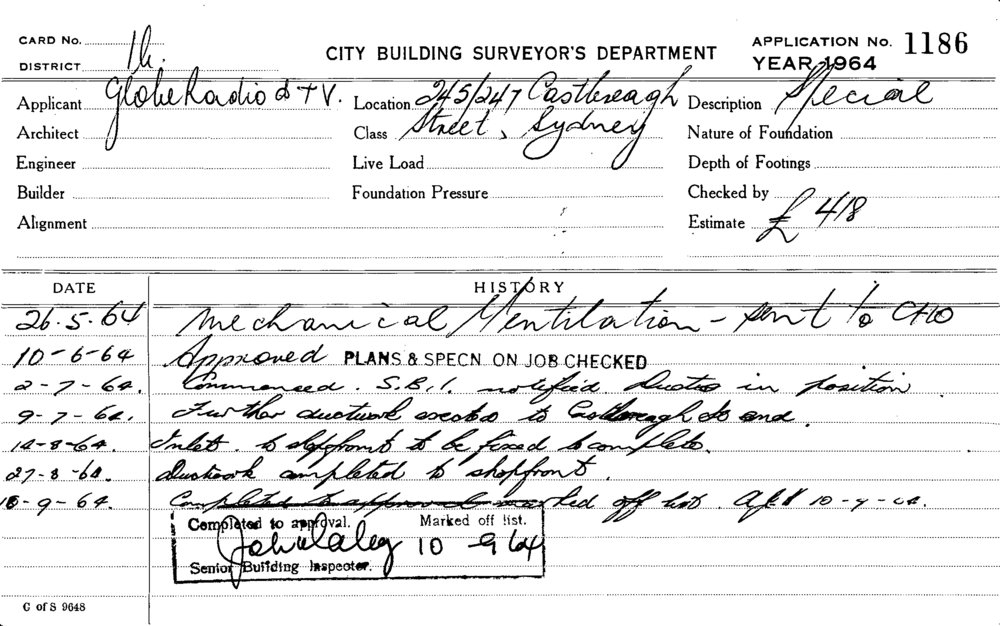 CARD No. 1h. CITY BUILDING SURVEYOR'S DEPARTMENT APPLICATION No. 1186
DISTRICT YEAR 1964
Applicant Globe Radio & TV. Location 245/247 Castlereagh Description Special
Architect Class Street, Sydney Nature of Foundation
Engineer Live Load Depth of Footings
Builder Foundation Pressure Checked by
Alignment Estimate £ 418
DATE HISTORY
26.5.64 Mechanical Ventilation - sent to CHO
10-6-64 Approved PLANS & SPECN. ON JOB CHECKED
2-7-64. Commenced. S.B.I. notified Ducting in position
9-7-64. Further ductwork erected to Castlereagh St end.
14-8-64. Inlet to shopfront to be fixed to complete.
27-8-64. Ductwork completed to shopfront.
10-9-64. Completed to approval marked off list. 10-9-64.
Completed to approval. Marked off list.
10-9 64
Senior Building Inspector.
C of S 9648